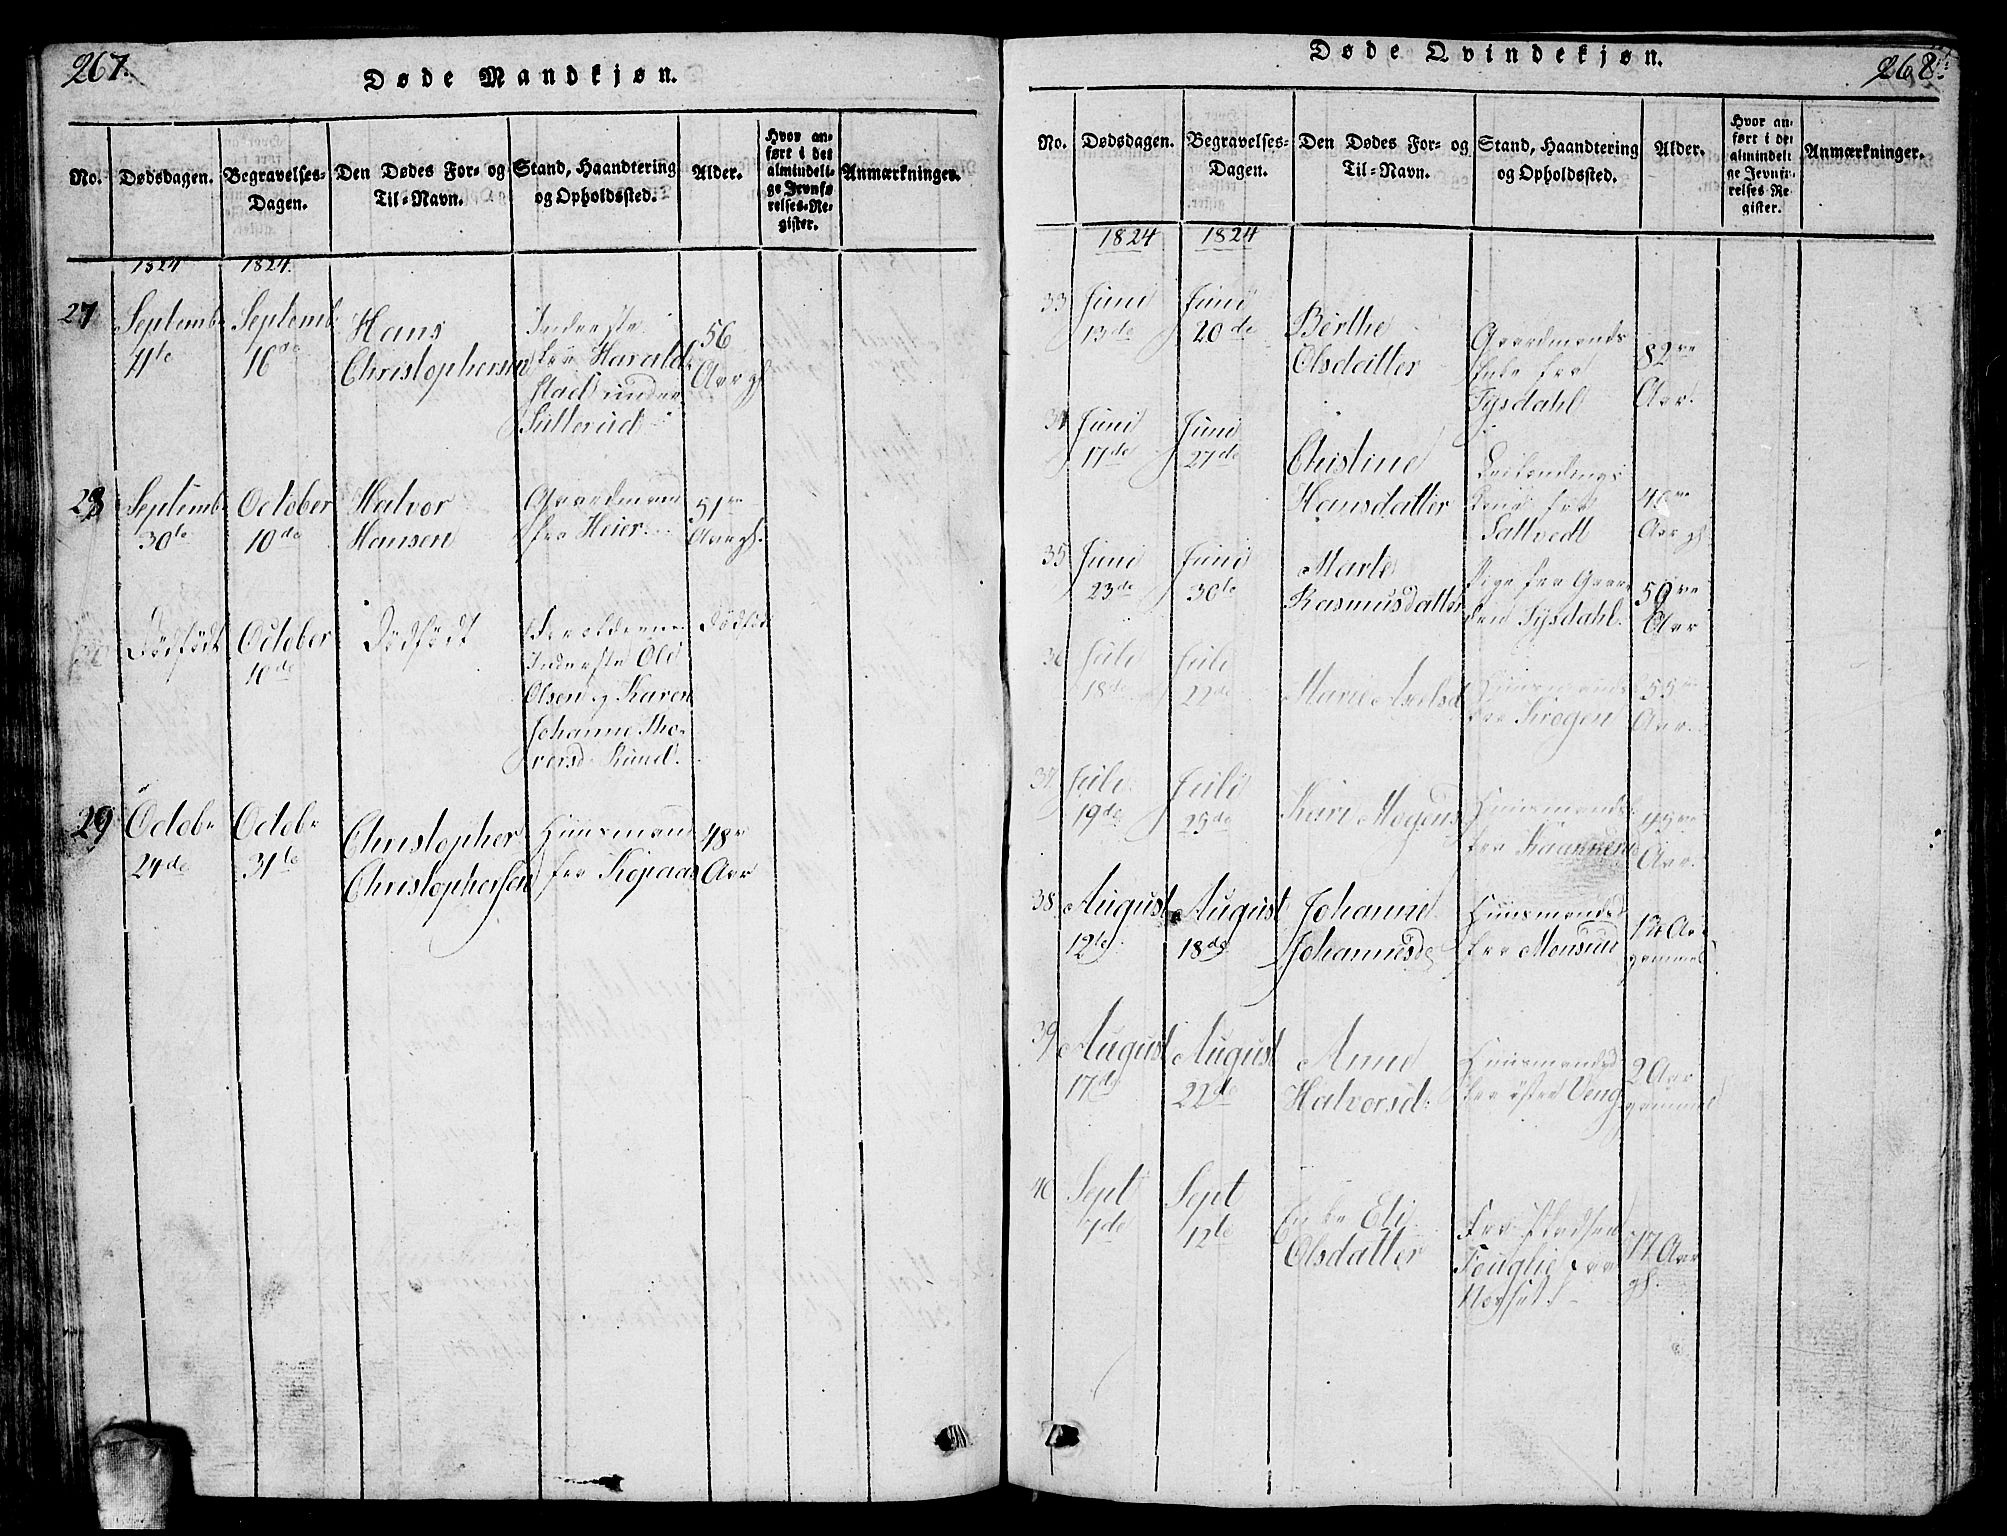 267.
Døde Mandkjøn.
No.
Dødsdagen.
Begravelses-
Dagen.
Den Dødes For- og
Til-Navn.
Stand, Haandtering
og Opholdssted.
Alder.
Hvor an-
ført i det
almindeli-
ge Jevnfø-
relses-Re-
gister.
Anmærkninger.
1824
1824.
27
Septemb
11te
Septemb
16de
Hans
Christophersen
Inderste
fra Harald
stad under
Sutterud
56
Aar gl
28
Septemb
30te
October
10de
Halvor
Hansen
Gaardmand
fra Heier
51
Aar gl.
Dödfödt
October
10de
Dödfödt
Forældrene
Inderste Ole
Olsen og Karen
Johanne Tho-
versd
Dödföd
29
Octobr
24de
Octobr
31te
Christopher
Christophersen
Huusmand
fra Kopaas
48
Aar
268.
Døde Qvindekjøn.
No.
Dødsdagen.
Begravelses-
Dagen.
Den Dødes For- og
Til-Navn.
Stand, Haandtering
og Opholdssted.
Alder.
Hvor an-
ført i det
almindeli
ge Jevnfø-
relses-Re-
gister.
Anmærkninger.
1824
1824
33
Juni
13de
Juni
20de
Berthe
Olsdatter
Gaardmands
Enke fra
Tysdahl
82
Aar.
34
Juni
17de
Juni
27de
Christine
Hansdatter
Leilendings
Kone fra
Sattvedt
40
Aar gl.
35
Juni
23de
Juni
30te
Marte
Rasmusdatter
Pige fra Gaar
den Tysdahl.
50
Aar
36
Juli
18de
Juli
22de
Marie Axelsd
Huusmands
fra Krogen
55
Aar.
37
Juli
19de
Juli
25de
Kari Mogens
Huusmands
fra
Aar.
38
August
12te
August
18de
Johanne
Johannesd
Huusmandsd
fra Monsrud
12 Aar
gammel
39
August
17de
August
22de
Anne
Halvorsd.
Huusmandsd
fra östre Veng
2 Aar
gammel
40
Sept
7de
Sept
12te
Enke Eli
Olsdatter
Fra Pladsen
77 Aar
gl.